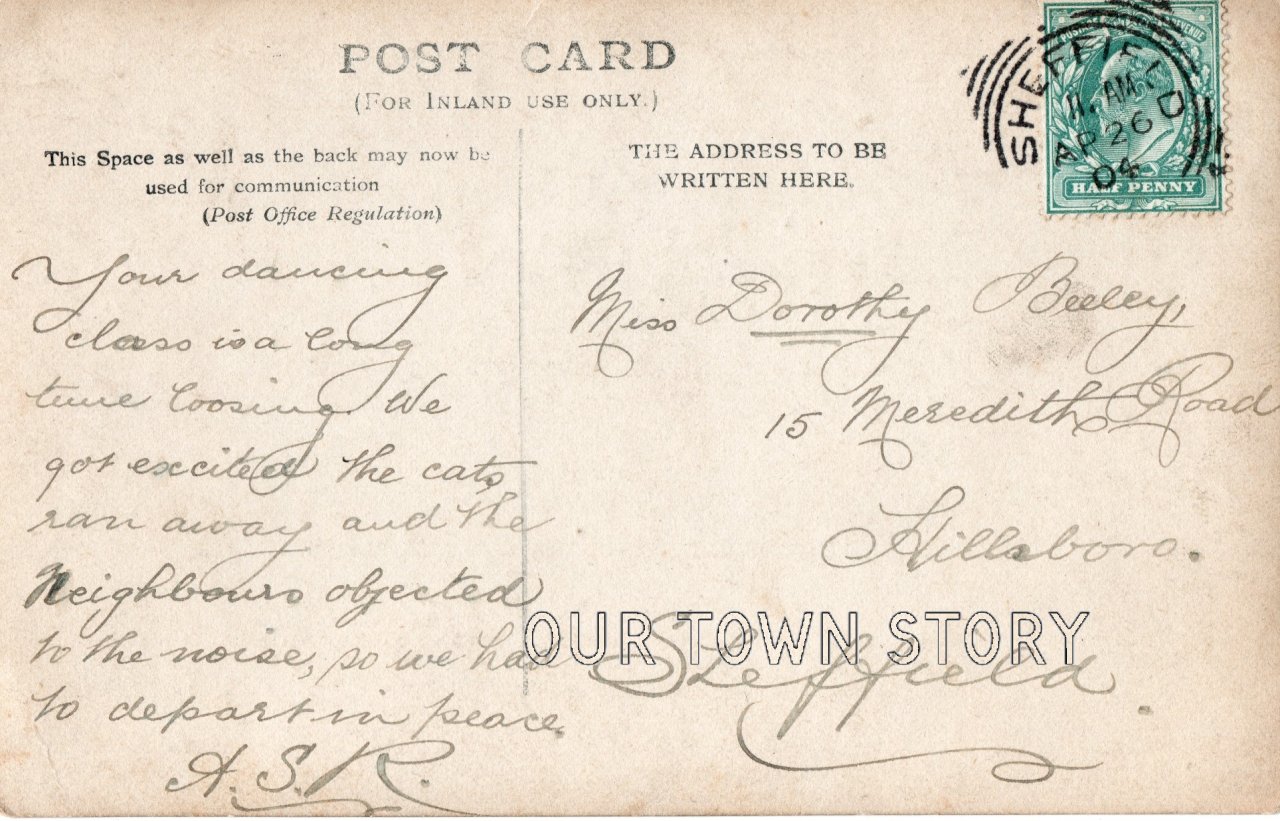 POST CARD
(FOR INLAND USE ONLY.)
This Space as well as the back may now be
used for communication
(Post Office Regulation)
THE ADDRESS TO BE
WRITTEN HERE.
SHEFFIELD
11. AM
AP 26
04
POSTAGE & REVENUE
HALF PENNY
Your dancing
class is a long
time loosing. We
got excited the cats
ran away and the
Neighbours objected
to the noise, so we had
to depart in peace.
A.S.R.
Miss Dorothy Beeley,
15 Meredith Road
Hillsboro.
Sheffield.
OUR TOWN STORY